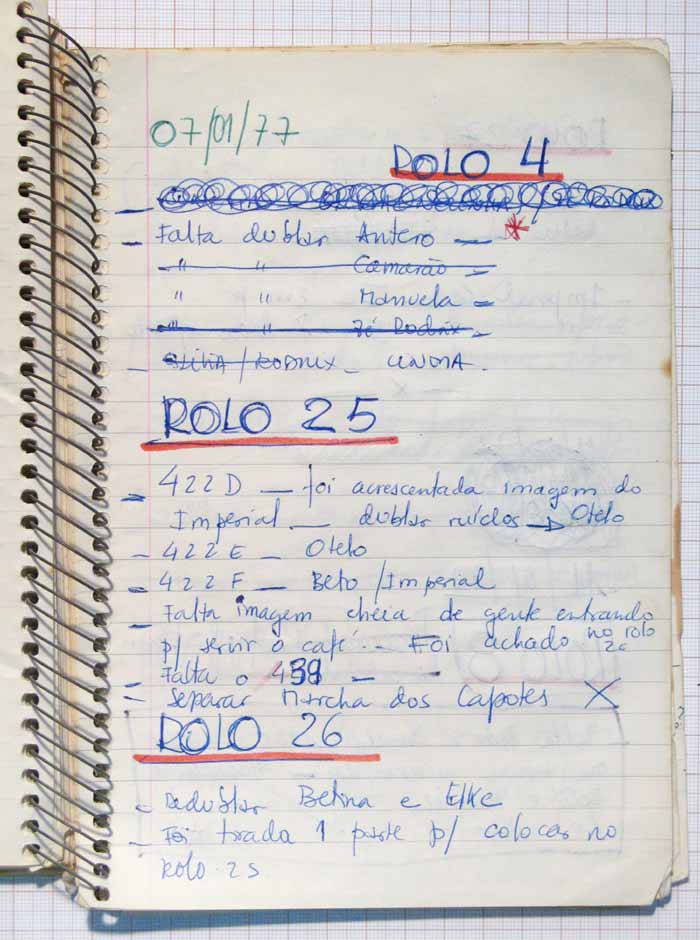 07/01/77
ROLO 4
– Falta dublar Antero — *
" " Camarão –
" " Manuela –
" " Zé Rodrix –
– /RODRIX –
ROLO 25
– 422D — foi acrescentada imagem do
Imperial — dublar ruídos → Otelo
– 422E – Otelo
– 422F — Beto/Imperial
– Falta imagem cheia de gente entrando
p/ servir o café – Foi achado no rolo
Falta o –
– Separar Marcha dos Capotes X
ROLO 26
– Redublar Betina e Elke
– Foi tirada 1 parte p/ colocar no
Rolo 25